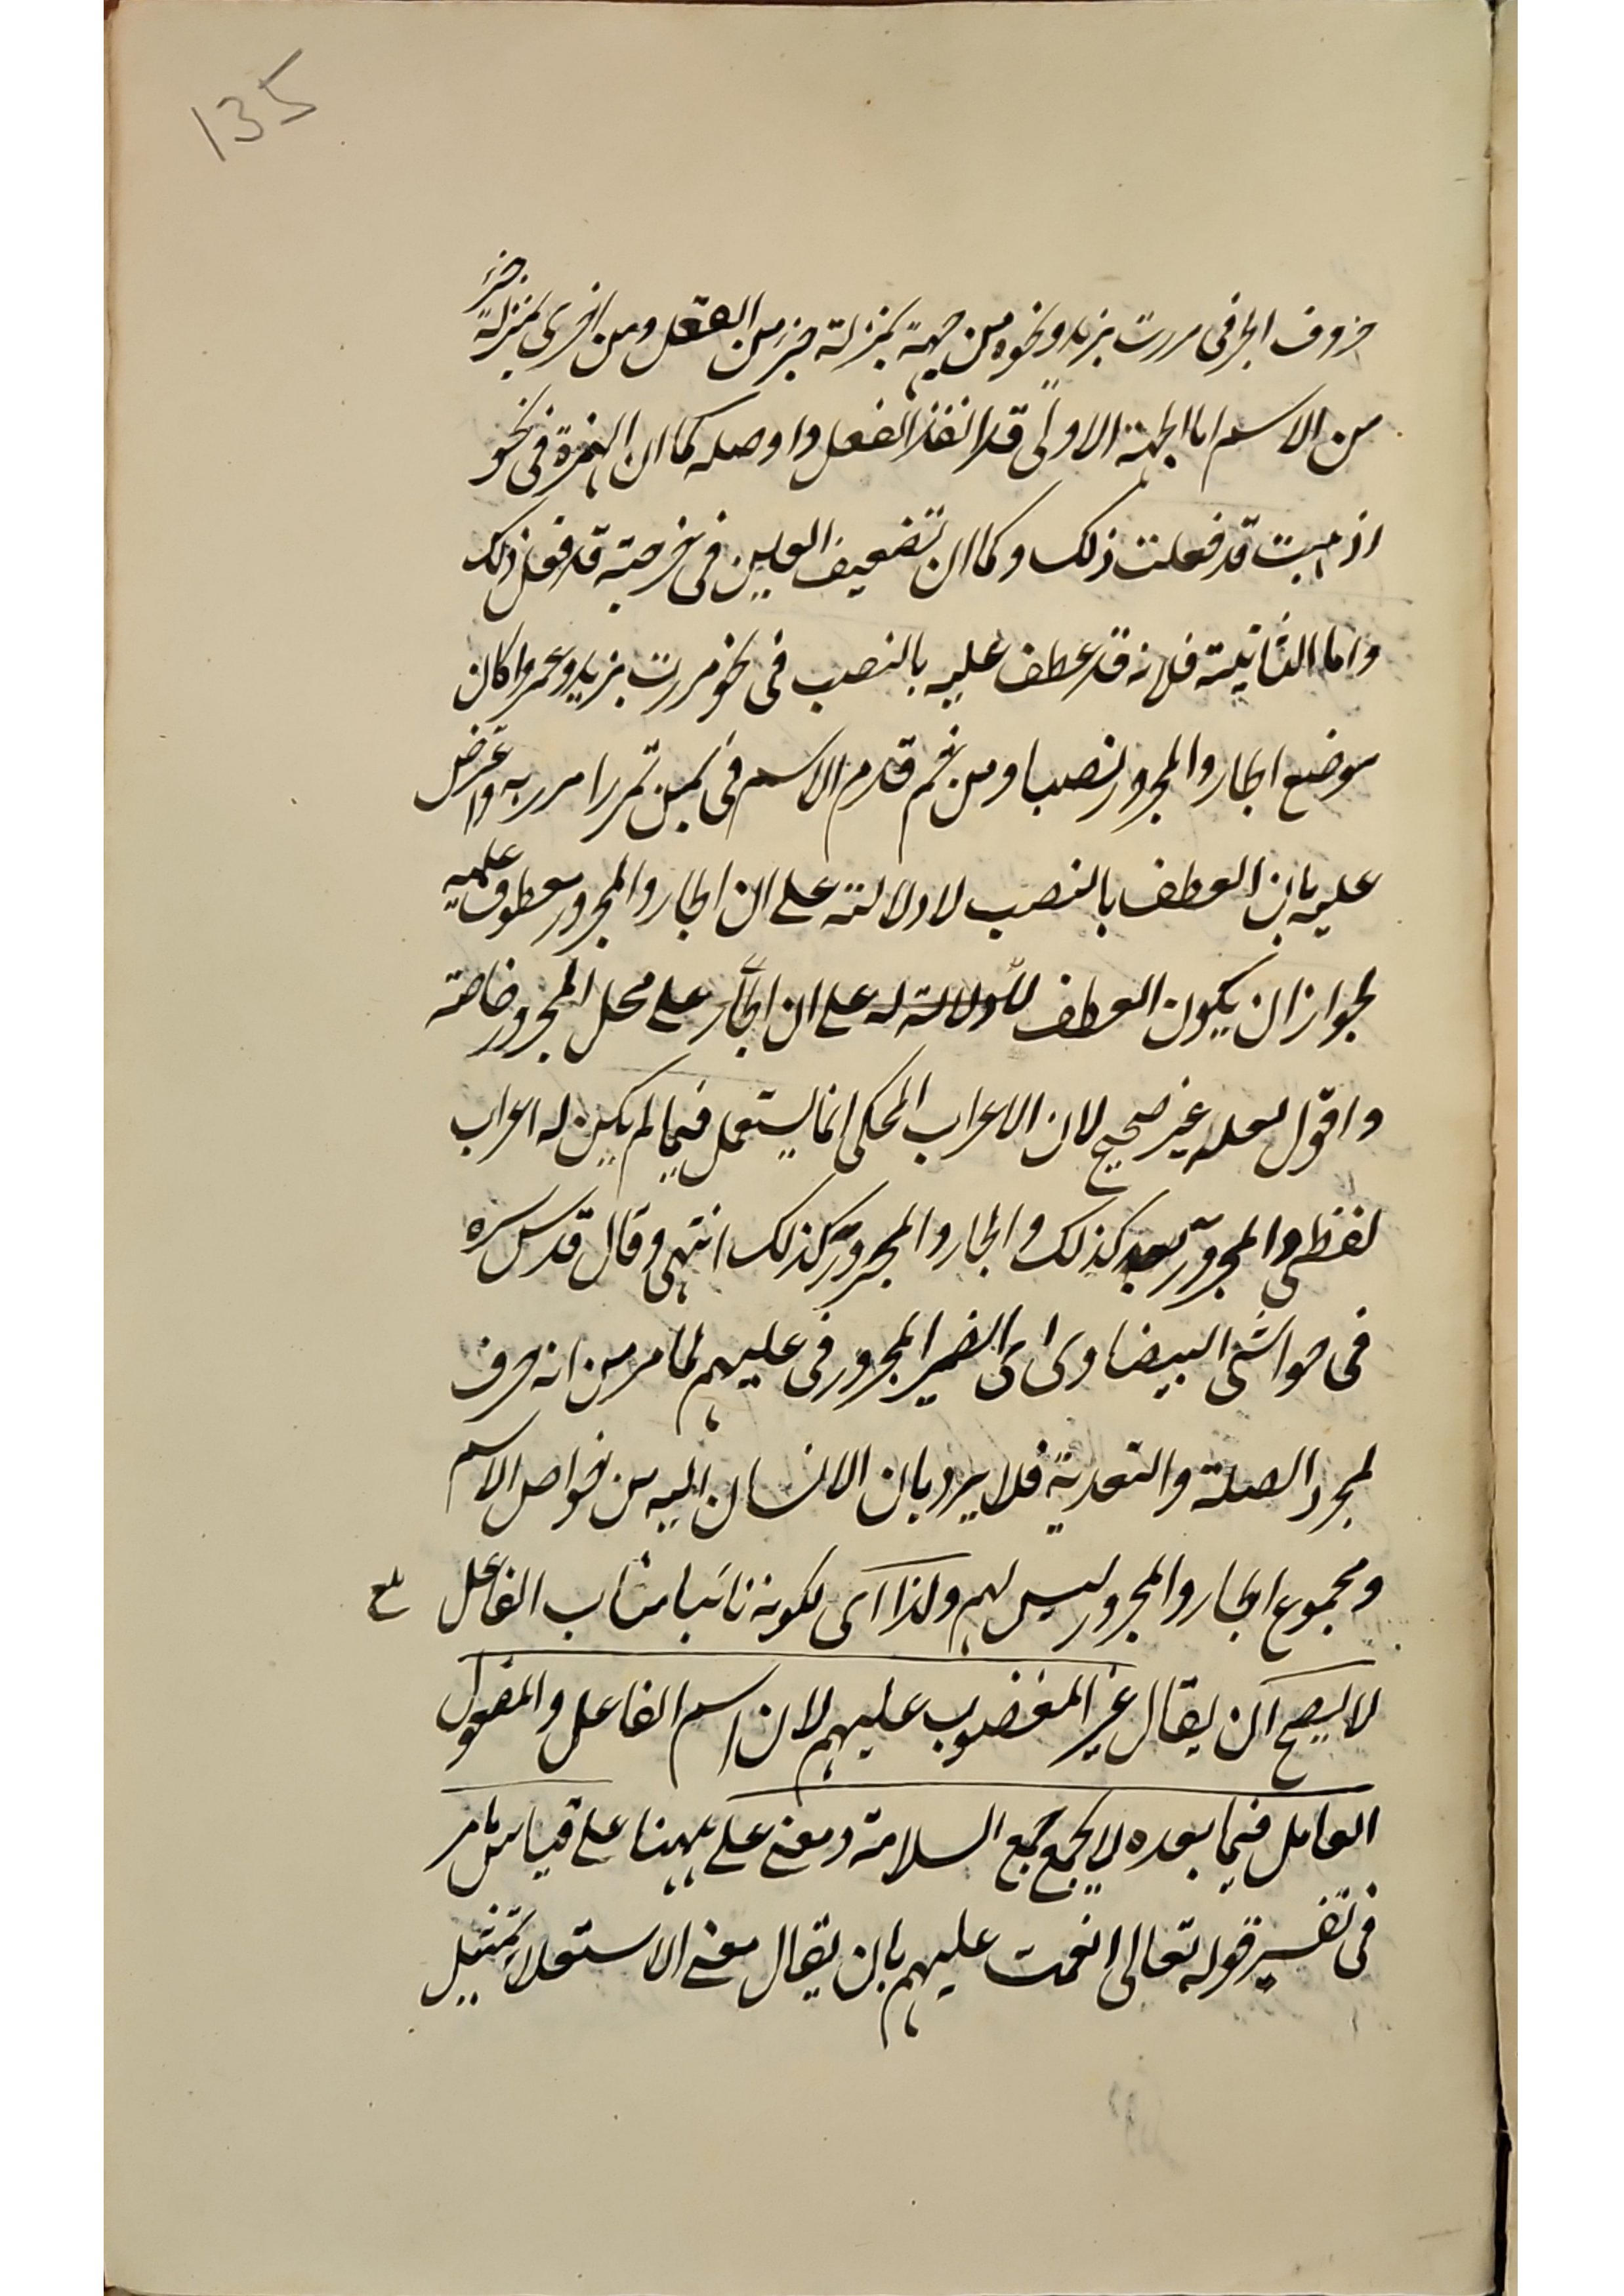 135
حروف الجر فى مررت بزيد ونحوه من جهة بمنزلة جزء من الفعل ومن اخرى بمنزلة جزء
من الاسم اما الجهة الاولى قد انفذ الفعل واوصله كما ان الهمزة فى نحو
اذهبت قد فعلت ذلك وكما ان تضعيف العين فى فرحته قد فعل ذلك
واما الثانية فلانه قد عطف عليه بالنصب فى نحو مررت بزيد وعمروا كان
موضع الجار والمجرور نصبا ومن ثم قدم الاسم فى تمرر امرر به واعترض
عليه بان العطف بالنصب لا دلالته على ان الجار والمجرور معطوف عليه
لجواز ان يكون العطف لا دلالة له على ان الجار على محل المجرور خاصة
واقول لعله غير صحيح لان الاعراب المحكى انما يستعمل فيما لم يكن له اعراب
لفظى والمجرور كذلك والجار والمجرور كذلك انتهى وقال قدس سره
فى حواشى البيضاوى اى الضمير المجرور فى عليهم لما مر من انه حرف
لمجرد الصلة والتعدية فلا يرد بان الانسان اليه من خواص الاسم
ومجموع الجار والمجرور ليس لهم ولذا اى لكونه نائبا مناب الفاعل
لا يصح ان يقال غير المغضوب عليهم لان اسم الفاعل والمفعول
العامل فيما بعده لا يجمع جمع السلامة ومعنى على ههنا على قياس ما مر
فى تفسير قوله تعالى انعمت عليهم بان يقال معنى الاستعلاء تمثيل